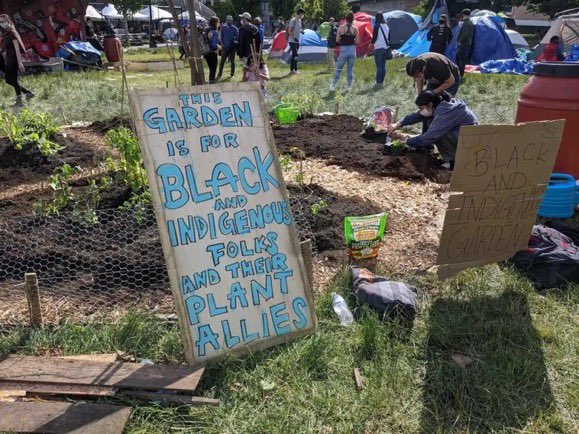 THIS
GARDEN
IS FOR
BLACK
AND
INDIGENOUS
FOLKS
AND THEIR
PLANT
ALLIES
BLACK
AND
INDIGENOUS
GARDEN